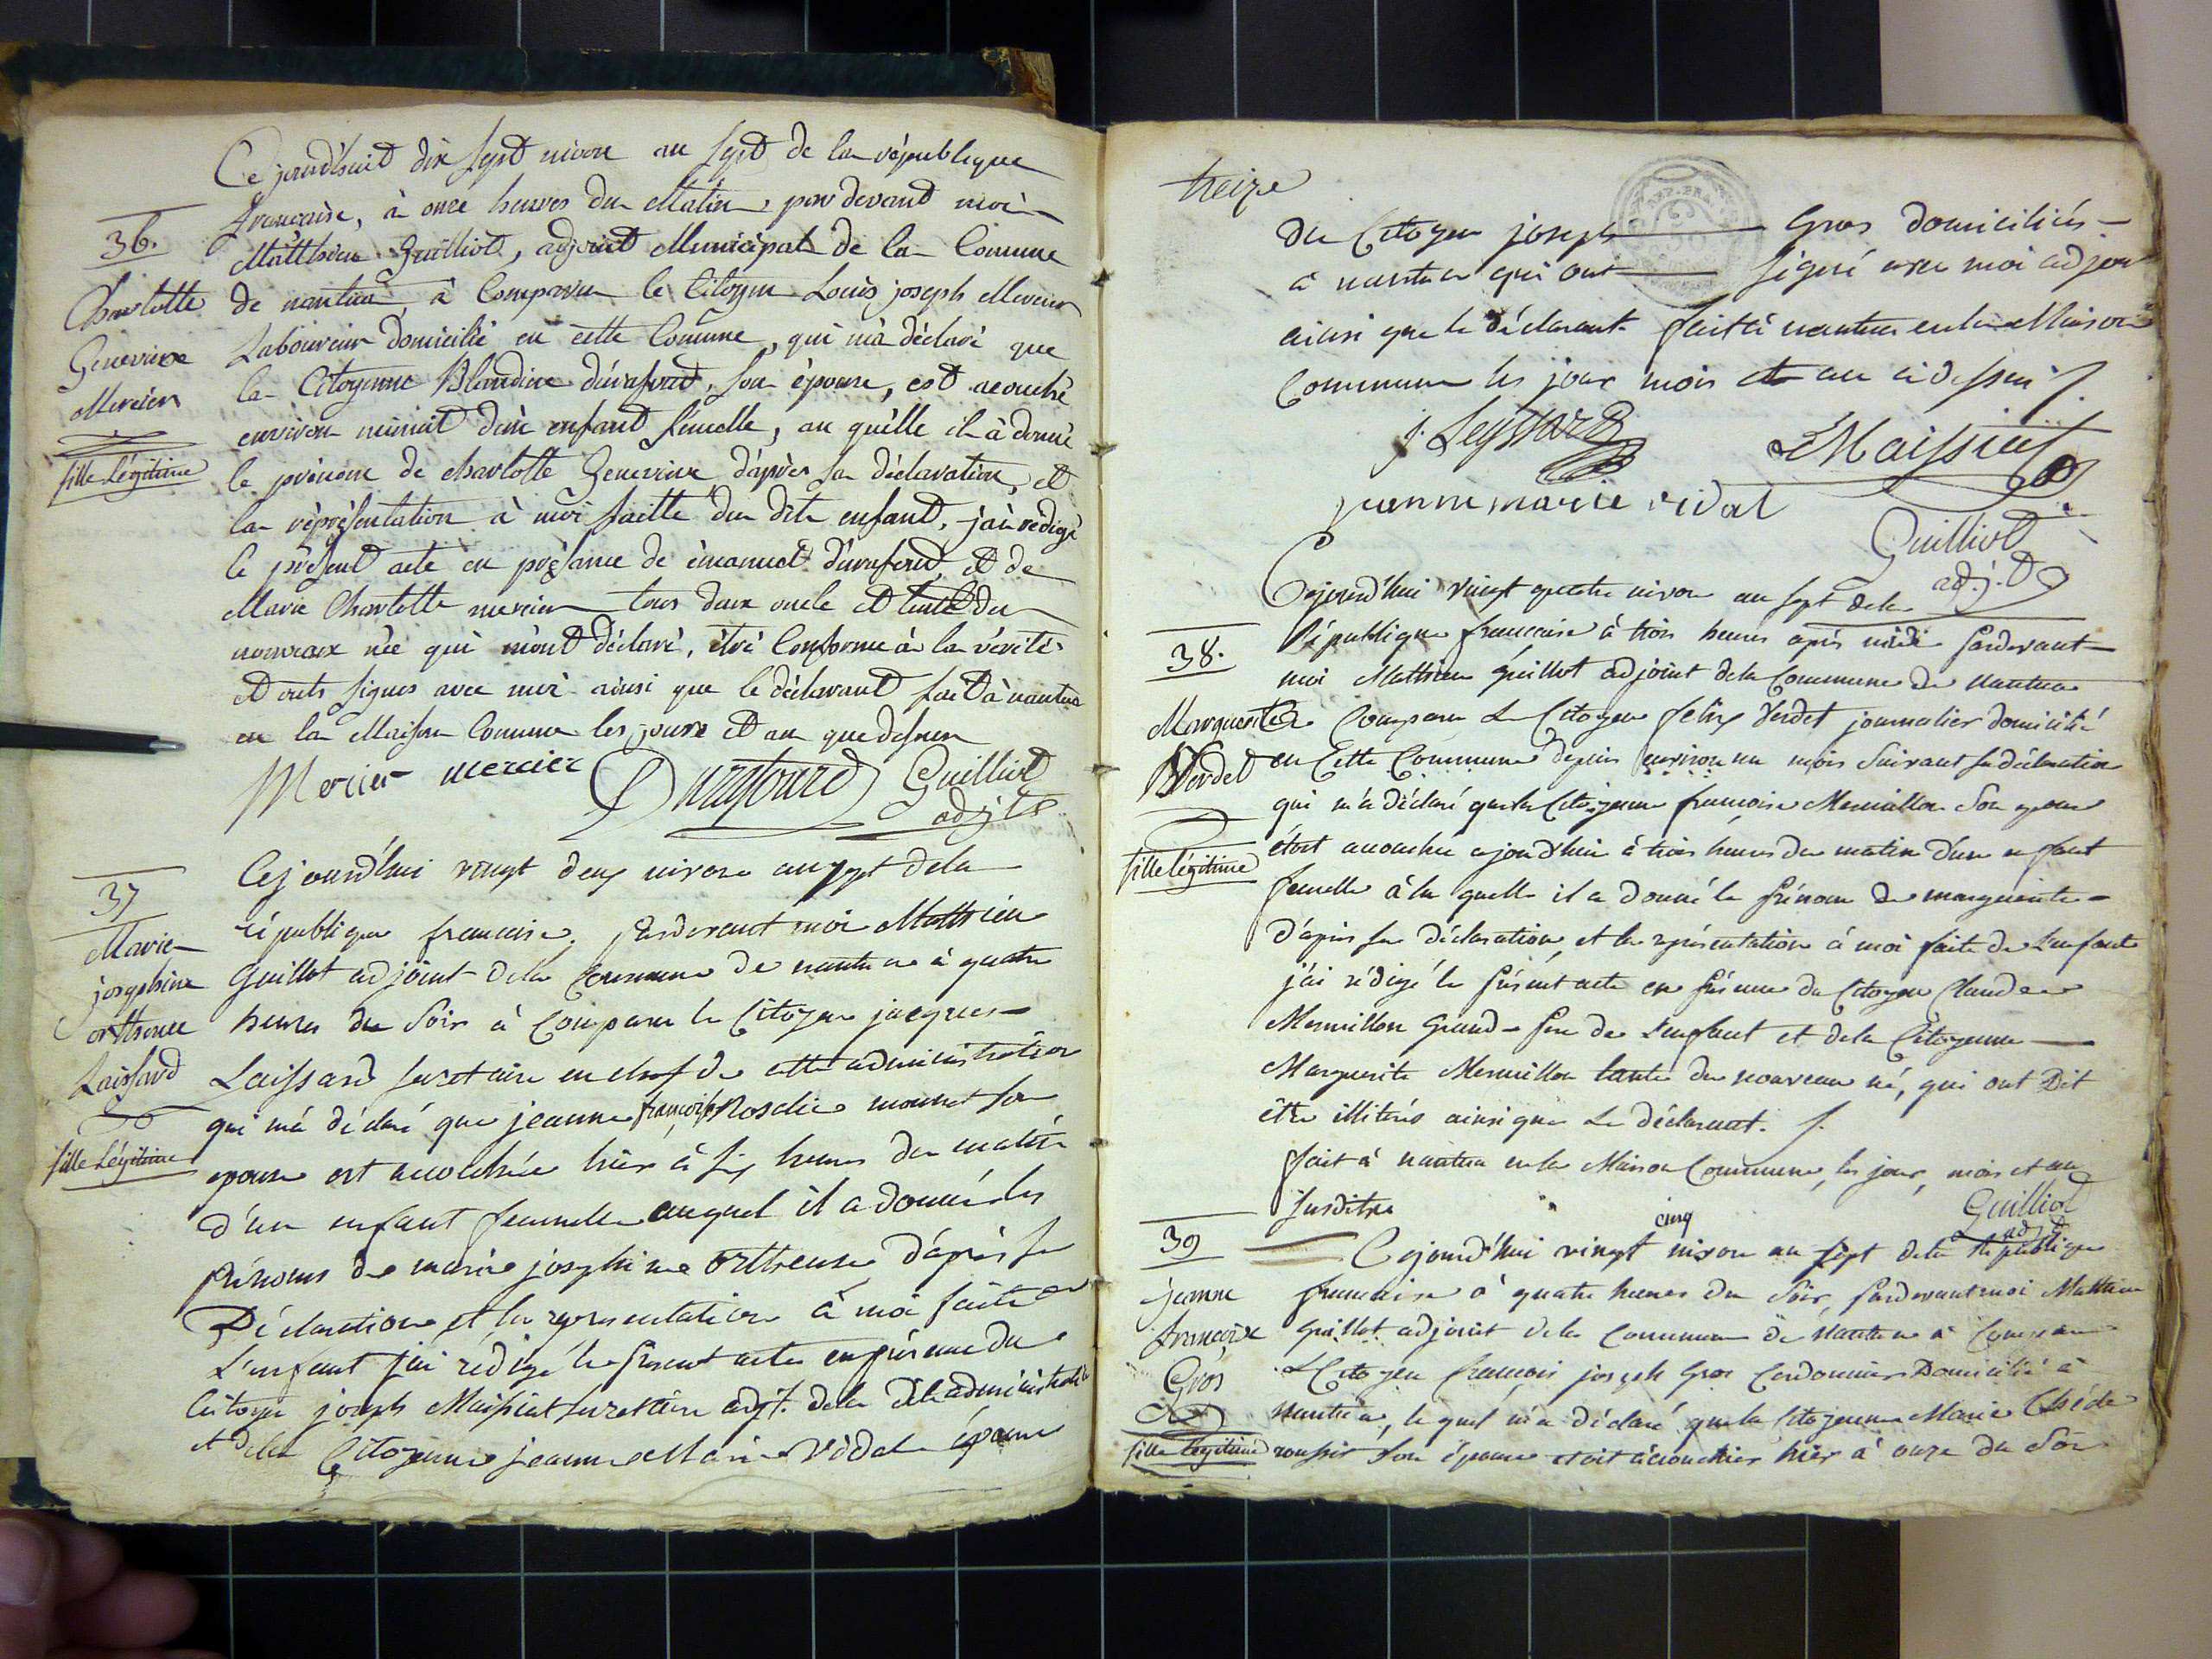 36.
Charlotte
Genevieve
Mercier
fille Légitime
Ce jourd'huit dix sept nivose an sept de la république
francaise, à onze heures du Matin, par devant moi
Matthieu Guilliot, adjoint Municipal de la Comune
de nantua, à Comparu le Citoyen Louis joseph Mercier
Laboureur domicilié en cette Comune, qui m'a déclaré que
la Citoyenne Blandine durafourd, son épouse, est acouché
environ minuit d'un enfant femelle, au quélle il à donné
le prénom de charlotte Genevieve d'après sa déclaration, et
la réprésentation à moi faitte du dit enfant, j'ai rédigé
le présent acte en présance de émanuel durafourd, et de
Marie Charlotte mercier tous deux oncle et tente du
nouveaux née qui m'ont déclaré, être Conforme à la vérité
et onts signés avec moi ainsi que le déclarant fait à nantua
en la Maison Comune les jours et an que dessus
Mercier mercier Durafourd Guilliot
adjt
37
Marie
josephine
orthense
Laissard
fille Légitime
Cejourd'hui vingt deux nivose an sept dela
république francaise, pardevant moi Matthieu
Guillot adjoint dela Commune de nantua à quatre
heures du Soir à Comparu le Citoyen jacques
Laissard secretaire en chef de cette administration
qui m'a déclaré que jeanne françoise Rosalie mounet son
epouse est accouchée hier à six heures du matin
d'un enfant femelle auquel il a donné les
prénoms de marie josephine ortheuse d'après sa
Déclaration et la representation à moi faite de
L'enfant j'ai rédigé le present acte en présence du
Citoyen joseph Maissiat secretaire adjt. dela dite administration
et dela Citoyenne jeanne Marie vidal épouse
treize
du Citoyen joseph Gros domiciliés
à nantua qui ont signé avec moi adjoint
ainsi que le déclarant fait à nantua en la Maison
Commune les jour mois et an ci dessus
j. Leyssard Maissiat
jeanne marie vidal
Guilliot
adj.t
38.
Marguerite
Verdet
fille légitime
Cejourd'hui vingt quatre nivose an sept dela
République francaise à trois heures après midi Pardevant
moi Matthieu Guillot adjoint dela Commune de Nantua
a Comparu Le Citoyen felix Verdet journalier domicilié
en Cette Commune depuis environ un mois Suivant sa déclaration
qui m'a déclaré que la Citoyenne francoise Mermillon Son epouse
étoit accouchée cejourd'hui à trois heures du matin d'un enfant
femelle à la quelle il a donné le Prénom de marguerite
D'après sa déclaration et la représentation à moi faite de L'enfant
j'ai rédigé le Présent acte en Présence du Citoyen Claude
Mermillon Grand-Pere de L'enfant et dela Citoyenne
Marguerite Mermillon tante du nouveau né, qui ont Dit
être illiterés ainsi que Le déclarant.
fait à nantua en la Maison Commune, les jour, mois et an
susditre
Guilliot
adjt
39
jeanne
francoise
Gros
fille légitime
Cejourd'hui vingt cinq nivose an sept dela République
francaise à quatre heures du Soir, Pardevant moi Matthieu
Guillot adjoint dela Commune de Nantua à Comparu
Le Citoyen francois joseph Gros Cordonnier Domicilié à
Nantua, le quel m'a déclaré que la Citoyenne Marie
roussit Son épouse etoit accouchée hier à onze du Soir